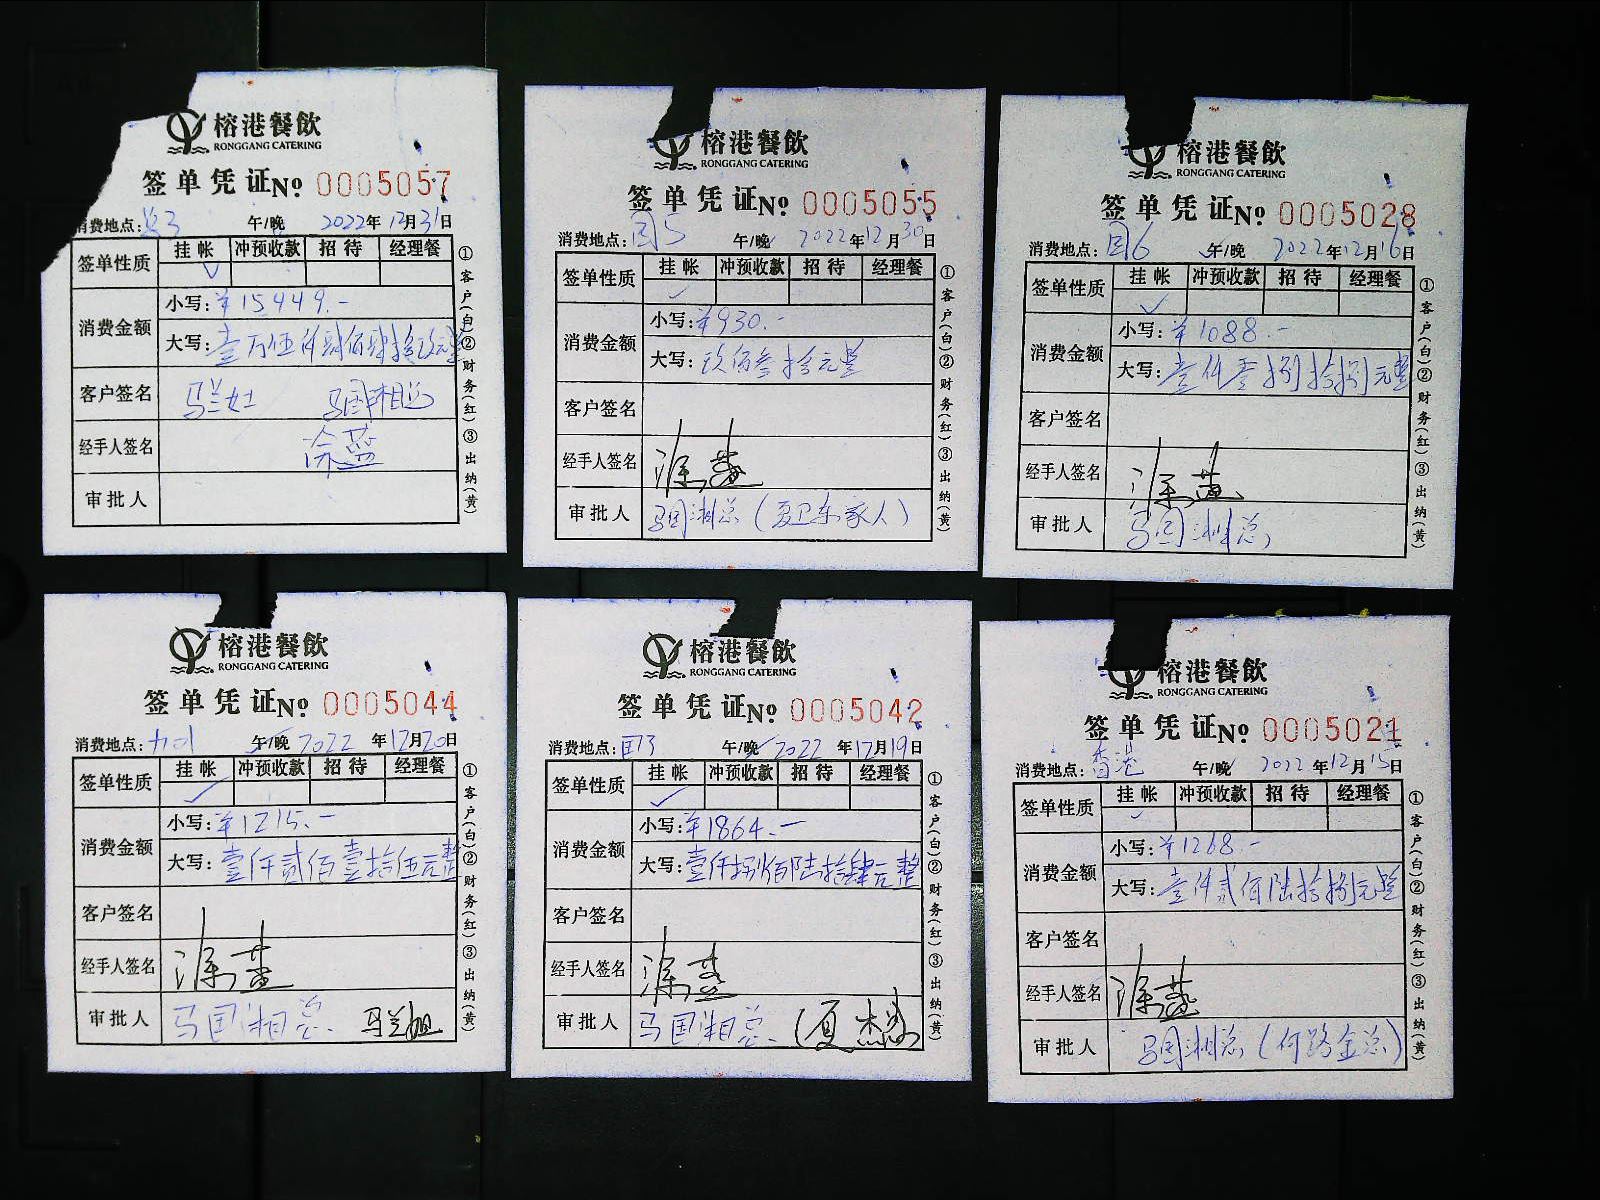 榕港餐飲
RONGGANG CATERING
签单凭证 № 0005057
消费地点: 午/晚 2022年12月31日
签单性质 挂帐 冲预收款 招待 经理餐
✓
消费金额 小写:¥15449.-
大写:壹万伍仟肆佰肆拾玖元整
客户签名 马兰 马国湘总
经手人签名 涂蓝
审批人
①客户(白)②财务(红)③出纳(黄)
榕港餐飲
RONGGANG CATERING
签单凭证 № 0005055
消费地点:国5 午/晚 2022年12月30日
签单性质 挂帐 冲预收款 招待 经理餐
✓
消费金额 小写:¥930.-
大写:玖佰叁拾元整
客户签名
经手人签名 涂蓝
审批人 马国湘总(夏卫东家人)
①客户(白)②财务(红)③出纳(黄)
榕港餐飲
RONGGANG CATERING
签单凭证 № 0005028
消费地点:国6 午/晚 2022年12月16日
签单性质 挂帐 冲预收款 招待 经理餐
✓
消费金额 小写:¥1088.-
大写:壹仟零捌拾捌元整
客户签名
经手人签名 涂蓝
审批人 马国湘总
①客户(白)②财务(红)③出纳(黄)
榕港餐飲
RONGGANG CATERING
签单凭证 № 0005044
消费地点: 午/晚 2022年12月20日
签单性质 挂帐 冲预收款 招待 经理餐
✓
消费金额 小写:¥1215.-
大写:壹仟贰佰壹拾伍元整
客户签名
经手人签名 涂蓝
审批人 马国湘总 马兰
①客户(白)②财务(红)③出纳(黄)
榕港餐飲
RONGGANG CATERING
签单凭证 № 0005042
消费地点:国3 午/晚 2022年12月19日
签单性质 挂帐 冲预收款 招待 经理餐
✓
消费金额 小写:¥1864.-
大写:壹仟捌佰陆拾肆元整
客户签名
经手人签名 涂蓝
审批人 马国湘总(夏杰
①客户(白)②财务(红)③出纳(黄)
榕港餐飲
RONGGANG CATERING
签单凭证 № 0005021
消费地点:香港 午/晚 2022年12月15日
签单性质 挂帐 冲预收款 招待 经理餐
✓
消费金额 小写:¥1268.-
大写:壹仟贰佰陆拾捌元整
客户签名
经手人签名 涂蓝
审批人 马国湘总(何路金总)
①客户(白)②财务(红)③出纳(黄)